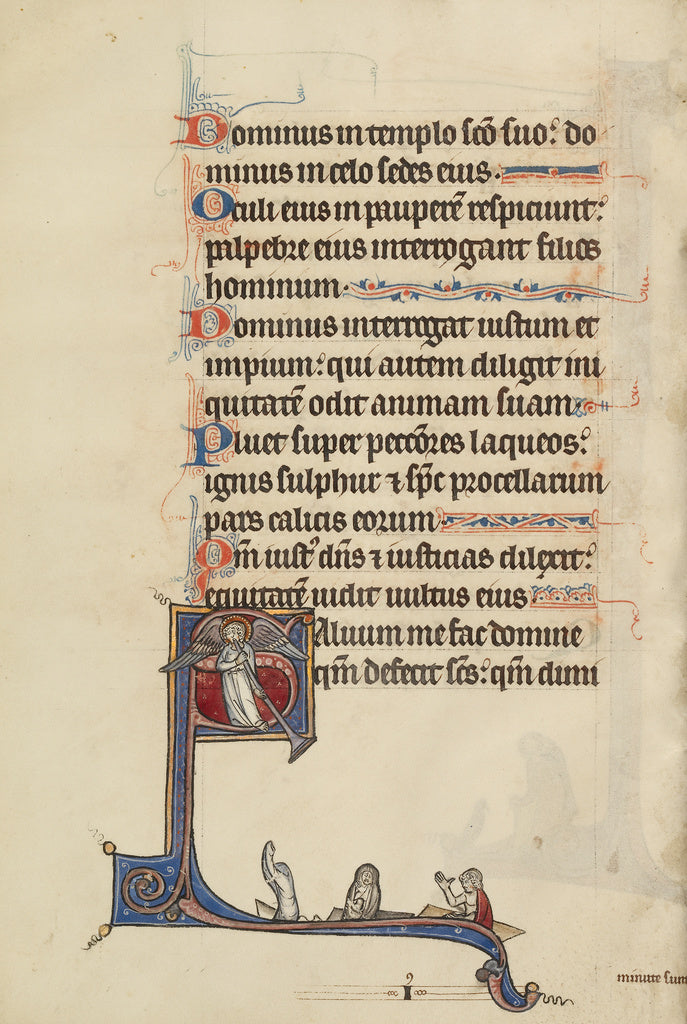 Dominus in templo scō suo: do
minus in celo sedes eius.
Oculi eius in pauperē respiciunt:
palpebre eius interrogant filios
hominum.
Dominus interrogat iustum et
impium: qui autem diligit ini
quitatē odit animam suam
Pluet super peccōres laqueos:
ignis sulphur ⁊ sp̄c procellarum
pars calicis eorum
Qm̄ iustꝰ dn̄s ⁊ iusticias dilexit:
equitatē uidit uultus eius
Saluum me fac domine
qm̄ defecit scs̄: qm̄ dimi
minute sunt